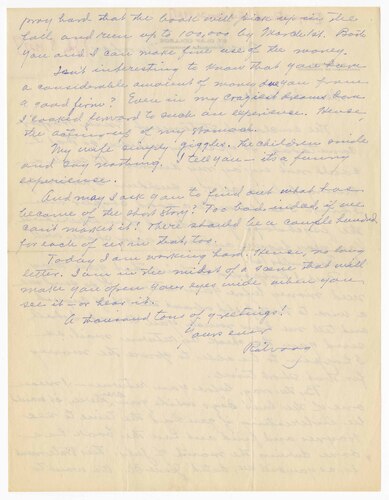 pray hard that the book will pick up in the
fall, and run up to 100,000 by March 1st. Both
you and I can make fine use of the money.
Isn't interesting to know that you have
a considerable amount of money due you from
a good firm? Even in my craziest dreams have
I looked forward to such an experience. Hence,
the of my stomach.
My wife simply giggles. The children smile
and say nothing. I tell you — it's a funny
experience.
And may I ask you to find out what has
become of the short story? Too bad, indeed, if we
can't make it! There should be a couple hundred
for each of us in that, too.
Today I am working hard. Hence, no long
letter. I am in the midst of a scene that will
make you open your eyes wide when you
see it — or hear it.
A thousand tons of greetings!
Yours ever
Rölvaag